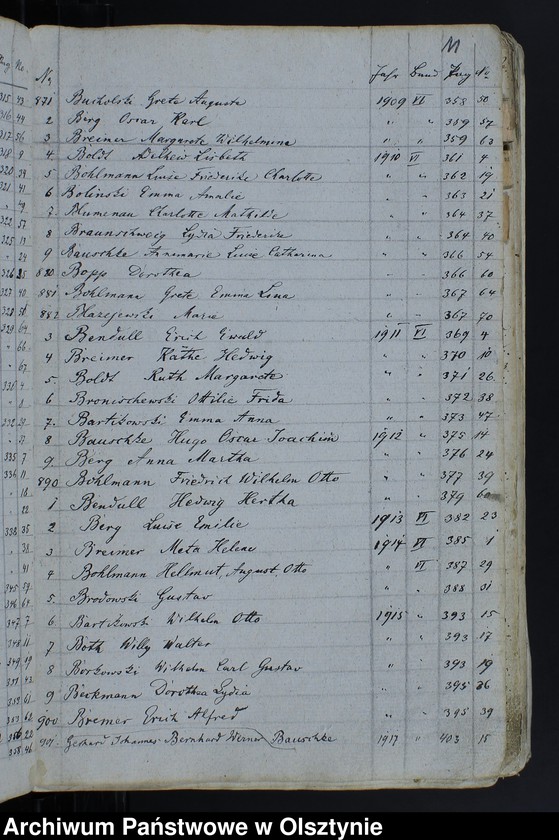 11
No Jahr Band Pag No
871 Bucholski Grete Auguste 1909 VI 358 50
2 Berg Oscar Karl " " 359 57
3 Breimer Margarete Wilhelmina " " 359 63
4 Boldt Lisbeth 1910 VI 361 4
5 Bohlmann Luise Friederike Charlotte " " 362 19
6 Bolinski Emma Amalie " " 363 21
7 Blumenau Charlotte Mathilde " " 364 37
8 Braunschweig Lydia Friederike " " 364 40
9 Bauschke Annemarie Luise Catharina " " 366 54
880 Bopp Dorothea " " 366 60
881 Bohlmann Grete Emma Lina " " 367 64
882 Blazejewski Marie " " 367 70
3 Bendull Erich Ewald 1911 VI 369 4
4 Breimer Käthe Hedwig " " 370 10
5. Boldt Ruth Margarete " " 371 26
6 Bronischewski Ottilie Frida " " 372 38
7. Bartikowski Emma Anna " " 373 47
8 Bauschke Hugo Oscar Joachim 1912 " 375 14
9 Berg Anna Martha " " 376 24
890 Bohlmann Friedrich Wilhelm Otto " " 377 39
1 Bendull Hedwig Hertha " " 379 60
2 Berg Luise Emilie 1913 VI 382 23
3 Breimer Meta Helene 1914 VI 385 1
4 Bohlmann Hellmut, August, Otto " VI 387 29
5. Brodowski Gustav " " 388 31
6 Bartikowski Wilhelm Otto 1915 " 393 15
7 Both Willy Walter " " 393 17
8 Borkowski Wilhelm Carl Gustav " " 393 19
9 Beckmann Dorothea Lydia " " 395 36
900 Bremer Erich Alfred " " 395 39
901 Gerhard Johannes Bernhard Werner Bauschke 1917 " 403 15
Archiwum Państwowe w Olsztynie